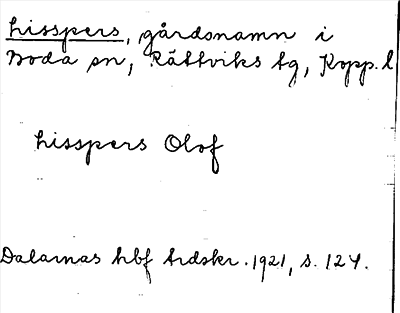 hisspers, gårdsnamn i
Boda sn, Rättviks tg, Kopp. l
hisspers Olof
Dalarnas hbf årdskr. 1921, s. 124.